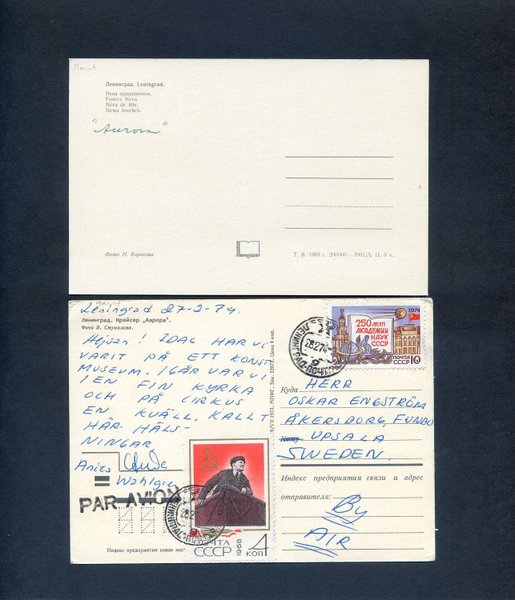 Margit
Ленинград. Leningrad.
Нева праздничная.
Festive Neva.
Néva de fête.
Newa feierlich.
"Aurora"
Фото Н. Борисова
Т. В. 1969 г. 200000
Leningrad 27-2-74.
Ленинград. Крейсер „Аврора".
Фото В. Стукалова.
Hejsan! IDAG HAR VI
VARIT PÅ ETT KONST
MUSEUM. IGÅR VAR VI
I EN FIN KYRKA
OCH PÅ CIRKUS
EN KVÄLL. KALLT
HÄR. HÄLS-
NINGAR
Anita
Wahlgren
PAR AVION
Индекс предприятия связи
ПОЧТА
СССР
1968
4
КОП
1974
250 ЛЕТ
АКАДЕМИИ
НАУК
СССР
ПОЧТА
СССР 10
Куда
HERR
OSKAR ENGSTRÖM
ÅKERSBORG, FUNBO
Кому
UPSALA
SWEDEN.
Индекс предприятия связи и адрес
отправителя:
By
AIR